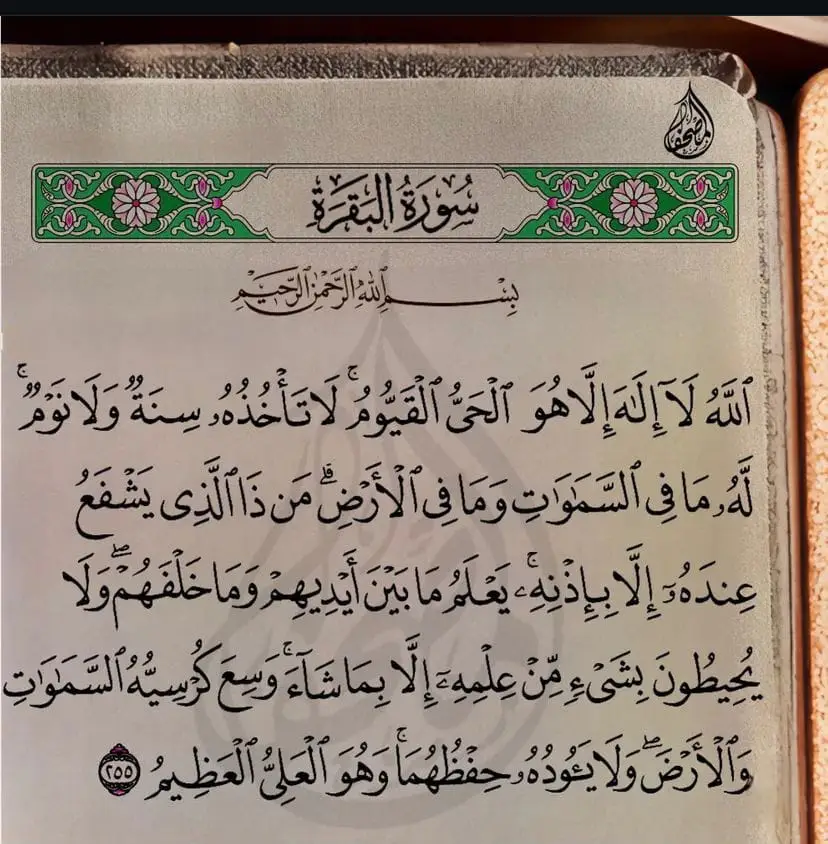 المصحف
سُورَةُ البَقَرَةِ
بِسْمِ ٱللَّهِ ٱلرَّحْمَٰنِ ٱلرَّحِيمِ
ٱللَّهُ لَآ إِلَٰهَ إِلَّا هُوَ ٱلْحَىُّ ٱلْقَيُّومُ ۚ لَا تَأْخُذُهُۥ سِنَةٌ وَلَا نَوْمٌ ۚ
لَّهُۥ مَا فِى ٱلسَّمَٰوَٰتِ وَمَا فِى ٱلْأَرْضِ ۗ مَن ذَا ٱلَّذِى يَشْفَعُ
عِندَهُۥٓ إِلَّا بِإِذْنِهِۦ ۚ يَعْلَمُ مَا بَيْنَ أَيْدِيهِمْ وَمَا خَلْفَهُمْ ۖ وَلَا
يُحِيطُونَ بِشَىْءٍ مِّنْ عِلْمِهِۦٓ إِلَّا بِمَا شَآءَ ۚ وَسِعَ كُرْسِيُّهُ ٱلسَّمَٰوَٰتِ
وَٱلْأَرْضَ ۖ وَلَا يَـُٔودُهُۥ حِفْظُهُمَا ۚ وَهُوَ ٱلْعَلِىُّ ٱلْعَظِيمُ ٢٥٥